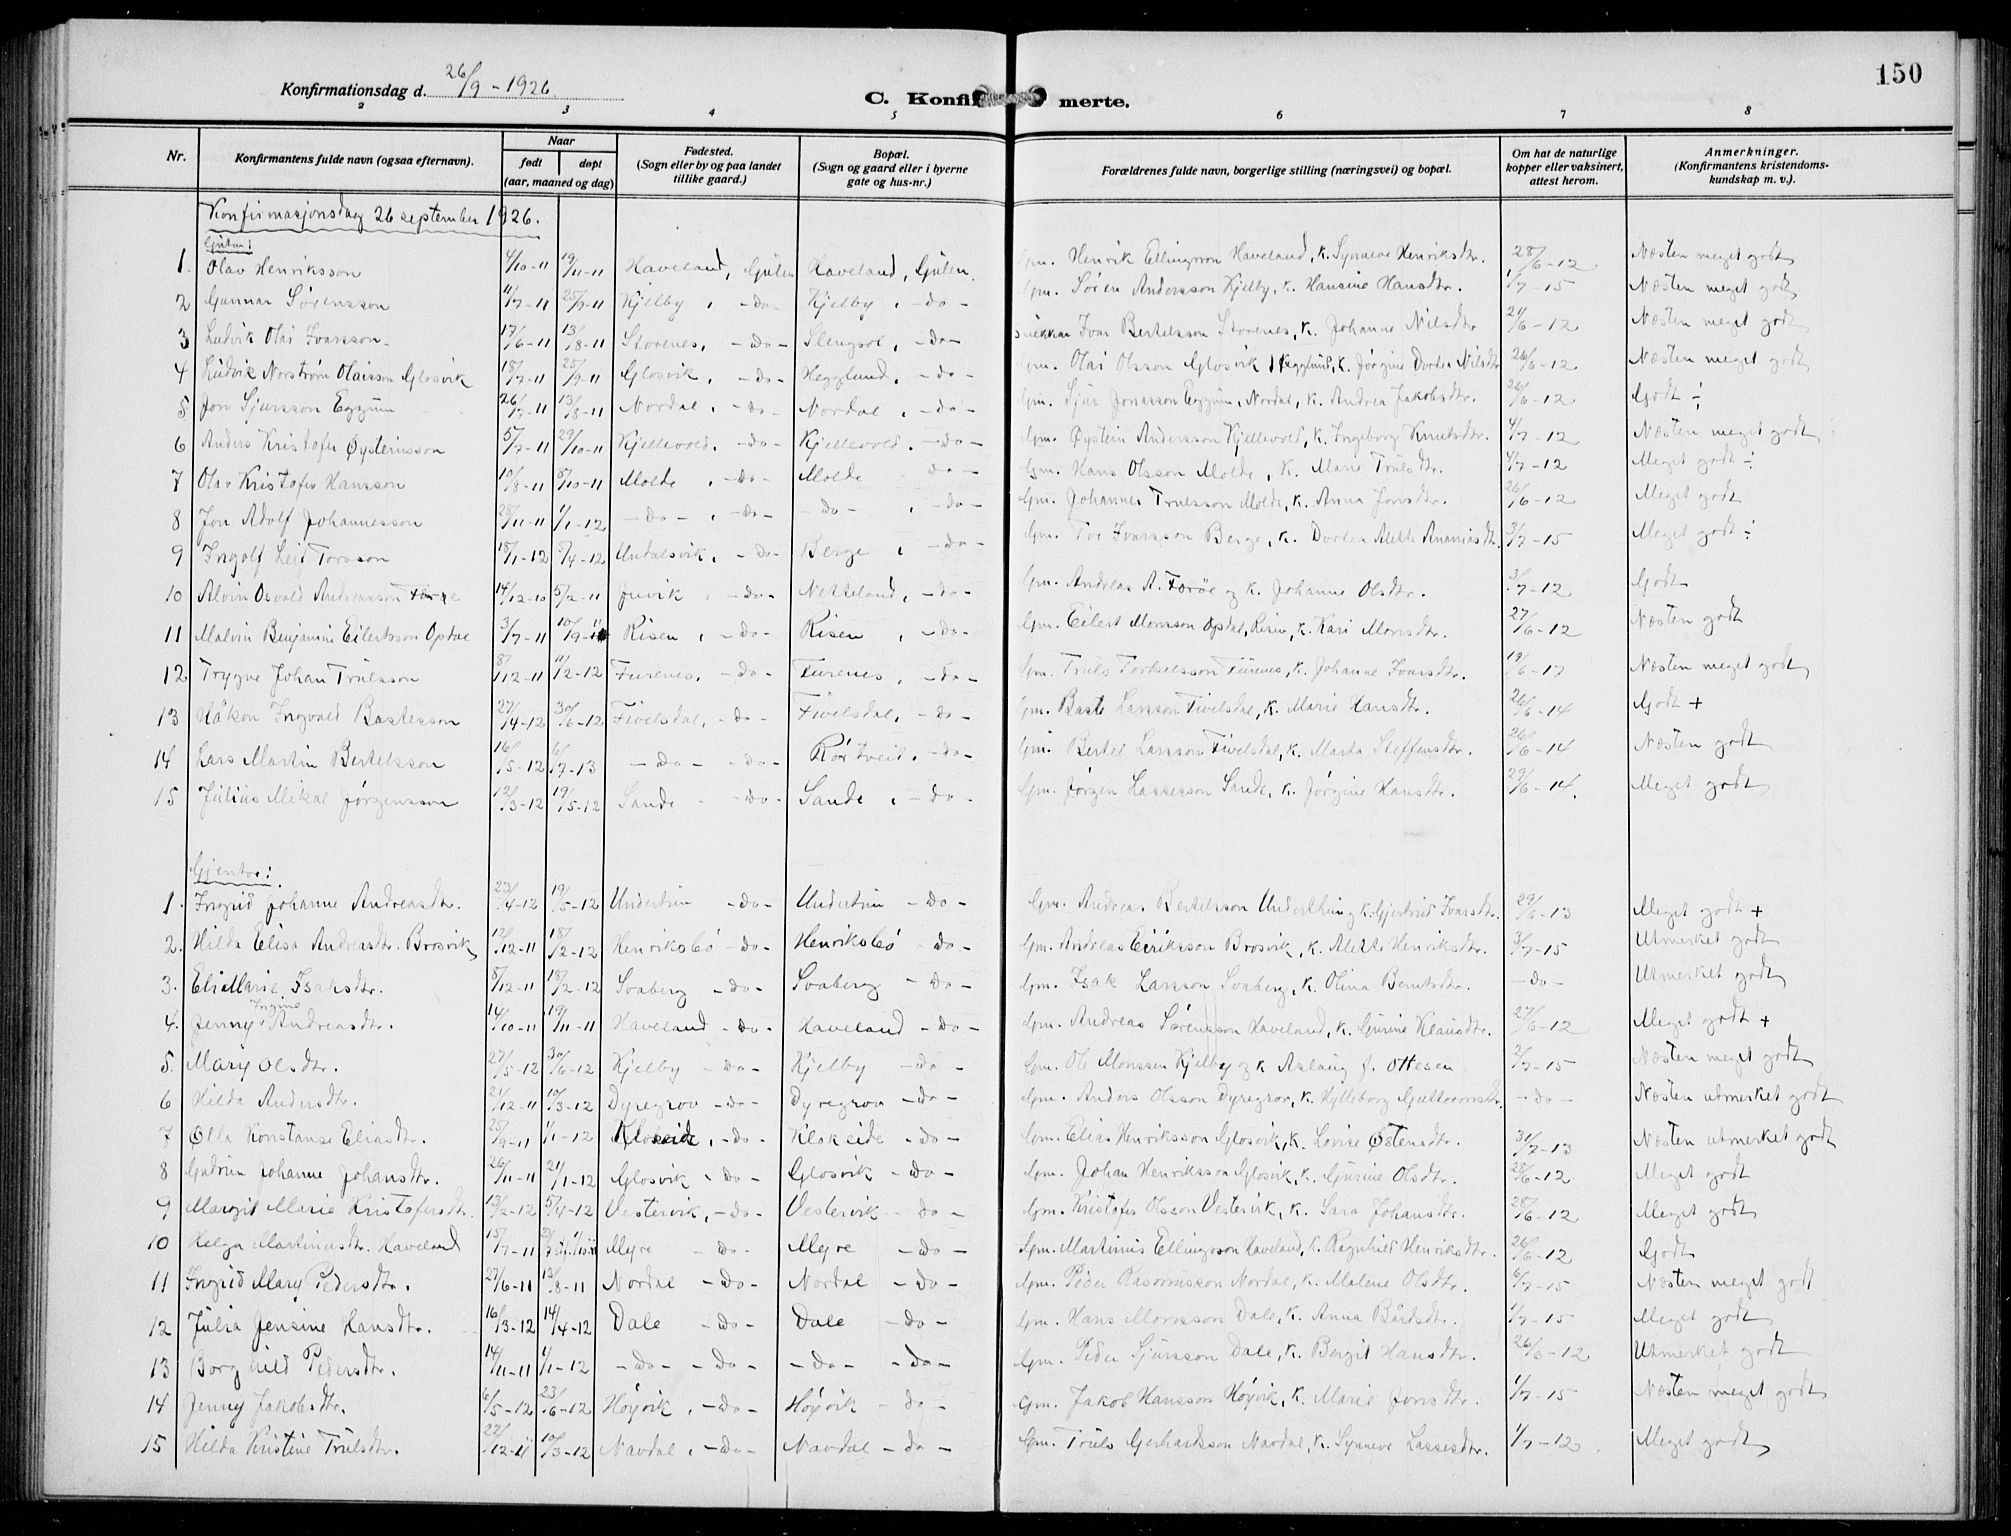 150
Konfirmationsdag d. 26/9 - 1926
C. Konfirmerte.
2 3 4 5 6 7 8
Nr. | Konfirmantens fulde navn (ogsaa efternavn). | Naar født døpt (aar, maaned og dag) | Fødested. (Sogn eller by og paa landet tillike gaard.) | Bopæl. (Sogn og gaard eller i byerne gate og hus-nr.) | Forældrenes fulde navn, borgerlige stilling (næringsvei) og bopæl. | Om hat de naturlige kopper eller vaksinert, attest herom. | Anmerkninger. (Konfirmantens kristendomskundskap m. v.).
Konfirmasjonsdag 26 september 1926.
Gutar:
1. Olav Henriksson 4/10-11 19/11-11 Haveland, Gulen Haveland, Gulen Gm. Henrik Ellingsson Haveland, k. Synneve Henriksdtr. 28/6-12 Næsten meget godt
2 Gunnar Sørensson 11/7-11 25/9-11 Kjelby, -do- Kjelby, -do- Gm. Søren Andersson Kjelby, k. Hansine Hansdtr. 1/7-15 Næsten meget godt
3 Ludvik Olai Ivarsson 17/6-11 13/8-11 Storenes, -do- Slengsol, -do- Snikkar Ivar Bertelsson Storenes, k. Johanne Nilsdtr 21/6-12 Næsten meget godt
4 Ludvik Norstrøm Olaisson Glosvik 18/7-11 25/9-11 Glosvik, -do- Hegglund, -do- Gm. Olai Olsson Glosvik, Hegglund, k. Jørgine Dortea Nilsdtr 26/6-12 Næsten meget godt
5 Jon Sjursson Eggum 26/7-11 13/8-11 Nordal, -do- Nordal, -do- Gm. Sjur Jonasson Eggum, Nordal, k. Andrea Jakobsdtr. 26/6-12 Godt ÷
6 Anders Kristofer Øysteinsson 5/7-11 29/10-11 Kjellevold, -do- Kjellevold, -do- Gm. Øystein Andersson Kjellevold, k. Ingeborg Knutsdtr. 4/7-12 Næsten meget godt
7 Olav Kristofer Hansson 10/8-11 8/10-11 Molde, -do- Molde -do- Gm. Hans Olsson Molde, k. Marie Trulsdtr. 4/7-12 Meget godt ÷
8 Jon Adolf Johannesson 28/11-11 1/1-12 -do-, -do- -do-, -do- Gm. Johannes Trulsson Molde, k. Anna Jonsdtr. 26/6-12 Meget godt
9 Ingolf Leif Torsson 18/1-12 5/4-12 Undalsvik, -do- Berge, -do- Gm. Tor Ivarsson Berge, k. Dortea Alette Ananiasdtr. 3/7-15 Meget godt ÷
10 Alvin Osvald Andreasson Færøe 14/12-10 5/2-11 Juvik, -do- Netteland, -do- Gm. Andreas A. Færøe og k. Johanne Olsdtr. 3/7-12 Godt
11 Malvin Benjamin Eilertsson Opdal 3/7-11 10/9-11 Risen, -do- Risen, -do- Gm. Eilert Monsson Opdal, Risen, k. Kari Monsdtr. 27/6-12 Næsten godt
12 Trygve Johan Trulsson 8/12-11 11/2-12 Furenes, -do- Furenes, -do- Gm. Truls Torkelsson Furenes, k. Johanne Ivarsdtr. 19/6-17 Næsten meget godt
13 Håkon Ingvald Bastesson 27/4-12 30/6-12 Fivelsdal, -do- Fivelsdal, -do- Gm. Baste Larsson Fivelsdal, k. Marie Hansdtr. 26/6-14 Godt +
14 Lars Martin Bertelsson 16/5-12 6/7-13 -do- -do- Rörtveit, -do- Gm. Bertel Larsson Fivelsdal, k. Marta Steffensdtr. 26/6-14 Næsten godt
15 Julius Mikal Jørgensson 12/3-12 19/5-12 Sande -do- Sande, -do- Gm. Jørgen Lassesson Sande, k. Jørgine Hansdtr. 29/6-14. Meget godt
Gjentor:
1. Ingrid Johanne Andreasdtr. 23/4-12 19/5-12 Undertun -do- Undertun -do- Gm. Andrea. Bertelsson Undertun og k. Gjertrud Ivarsdtr. 29/6-13 Meget godt +
2. Hilda Elisa Andreasdtr. Brosvik 12/12-11 18/2-12 Henriksbö -do- Henriksbö -do- Gm. Andreas Eiriksson Brosvik, k. Alette Henriksdtr. 3/7-15 Utmerket godt
3. Eli Marie Isaksdtr. 8/12-11 18/2-12 Svaberg -do- Svaberg -do- Gm. Isak Larsson Svaberg, k. Olina Berntsdtr. -do- Utmerket godt
4. Jenny Ingine Andreasdtr. 14/10-11 19/11-11 Haveland -do- Haveland -do- Gm. Andreas Sørensson Haveland, k. Gurine Klausdtr. 27/6-12 Meget godt +
5. Mary Olsdtr. 27/5-12 30/6-12 Kjelby -do- Kjelby -do- Gm. Ole Monssen Kjelby og k. Aslaug f. Ottesen 2/7-15 Næsten meget godt
6 Hilda Andersdtr. 21/12-11 10/3-12 Dyregrov -do- Dyregrov -do- Gm. Anders Olsson Dyregrov, k. Hylleborg Guttormsdtr. -do- Næsten utmerket godt
7 Olla Konstanse Eliasdtr. 25/9-11 1/1-12 Klokeide, -do- Klokeide -do- Gm. Elias Henriksson Glosvik, k. Lovise Östensdtr. 31/7-13 Næsten utmerket godt
8 Gudrun Johanne Johansdtr. 26/11-11 21/1-12 Glosvik -do- Glosvik -do- Gm. Johan Henriksson Glosvik, k. Gurine Olsdtr. 28/6-12 Meget godt
9 Margit Marie Kristofersdtr. 13/2-12 5/4-12 Vestervik, -do- Vestervik -do- Gm. Kristofer Olsson Vestervik, k. Sara Johansdtr. 28/6-12 Meget godt
10 Helga Martinusdtr. Haveland 15/7-11 Myre -do- Myre -do- Gm. Martinus Ellingsson Haveland, k. Ragnhild Henriksdtr. 26/6-12 Godt
11 Ingrid Mary Pedersdtr. 27/6-11 13/8-11 Nordal -do- Nordal -do- Gm. Peder Rasmusson Nordal, k. Malene Olsdtr. 6/7-15 Næsten meget godt
12 Julia Jensine Hansdtr. 16/3-12 14/4-12 Dale -do- Dale -do- Gm. Hans Monsson Dale, k. Anna Bårdsdtr. 1/7-15 Meget godt
13 Borghild Pedersdtr. 14/11-11 1/1-12 -do- -do- -do- -do- Gm. Peder Sjursson Dale, k. Bergit Hansdtr. 26/6-12 Utmerket godt
14 Jenny Jakobsdtr. 6/5-12 23/6-12 Höyvik, -do- Höyvik -do- Gm. Jakob Hansson Höyvik, k. Marie Jonsdtr. 1/7-15 Næsten meget godt
15 Hilda Kristine Trulsdtr. 22/12-11 10/3-12 Navdal, -do- Navdal -do- Gm. Truls Gerhardsson Navdal, k. Synneve Lassesdtr. 1/7-12 Meget godt